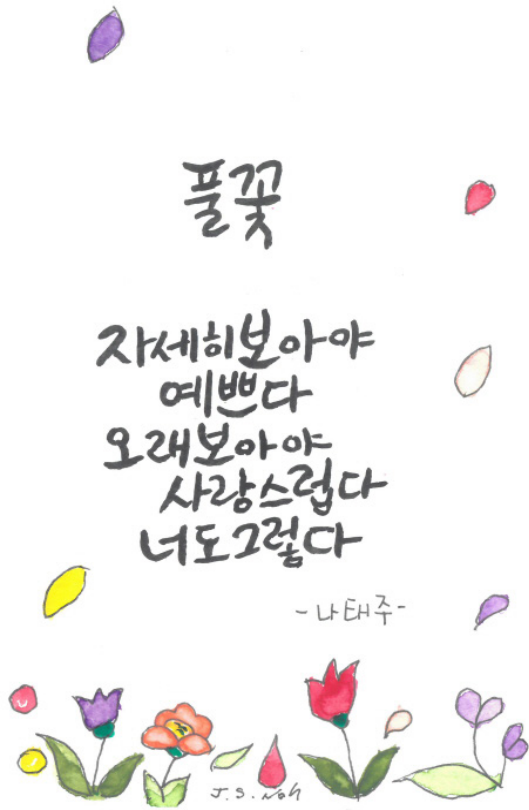 풀꽃
자세히보아야
예쁘다
오래보아야
사랑스럽다
너도그렇다
-나태주-
J.S.Noh